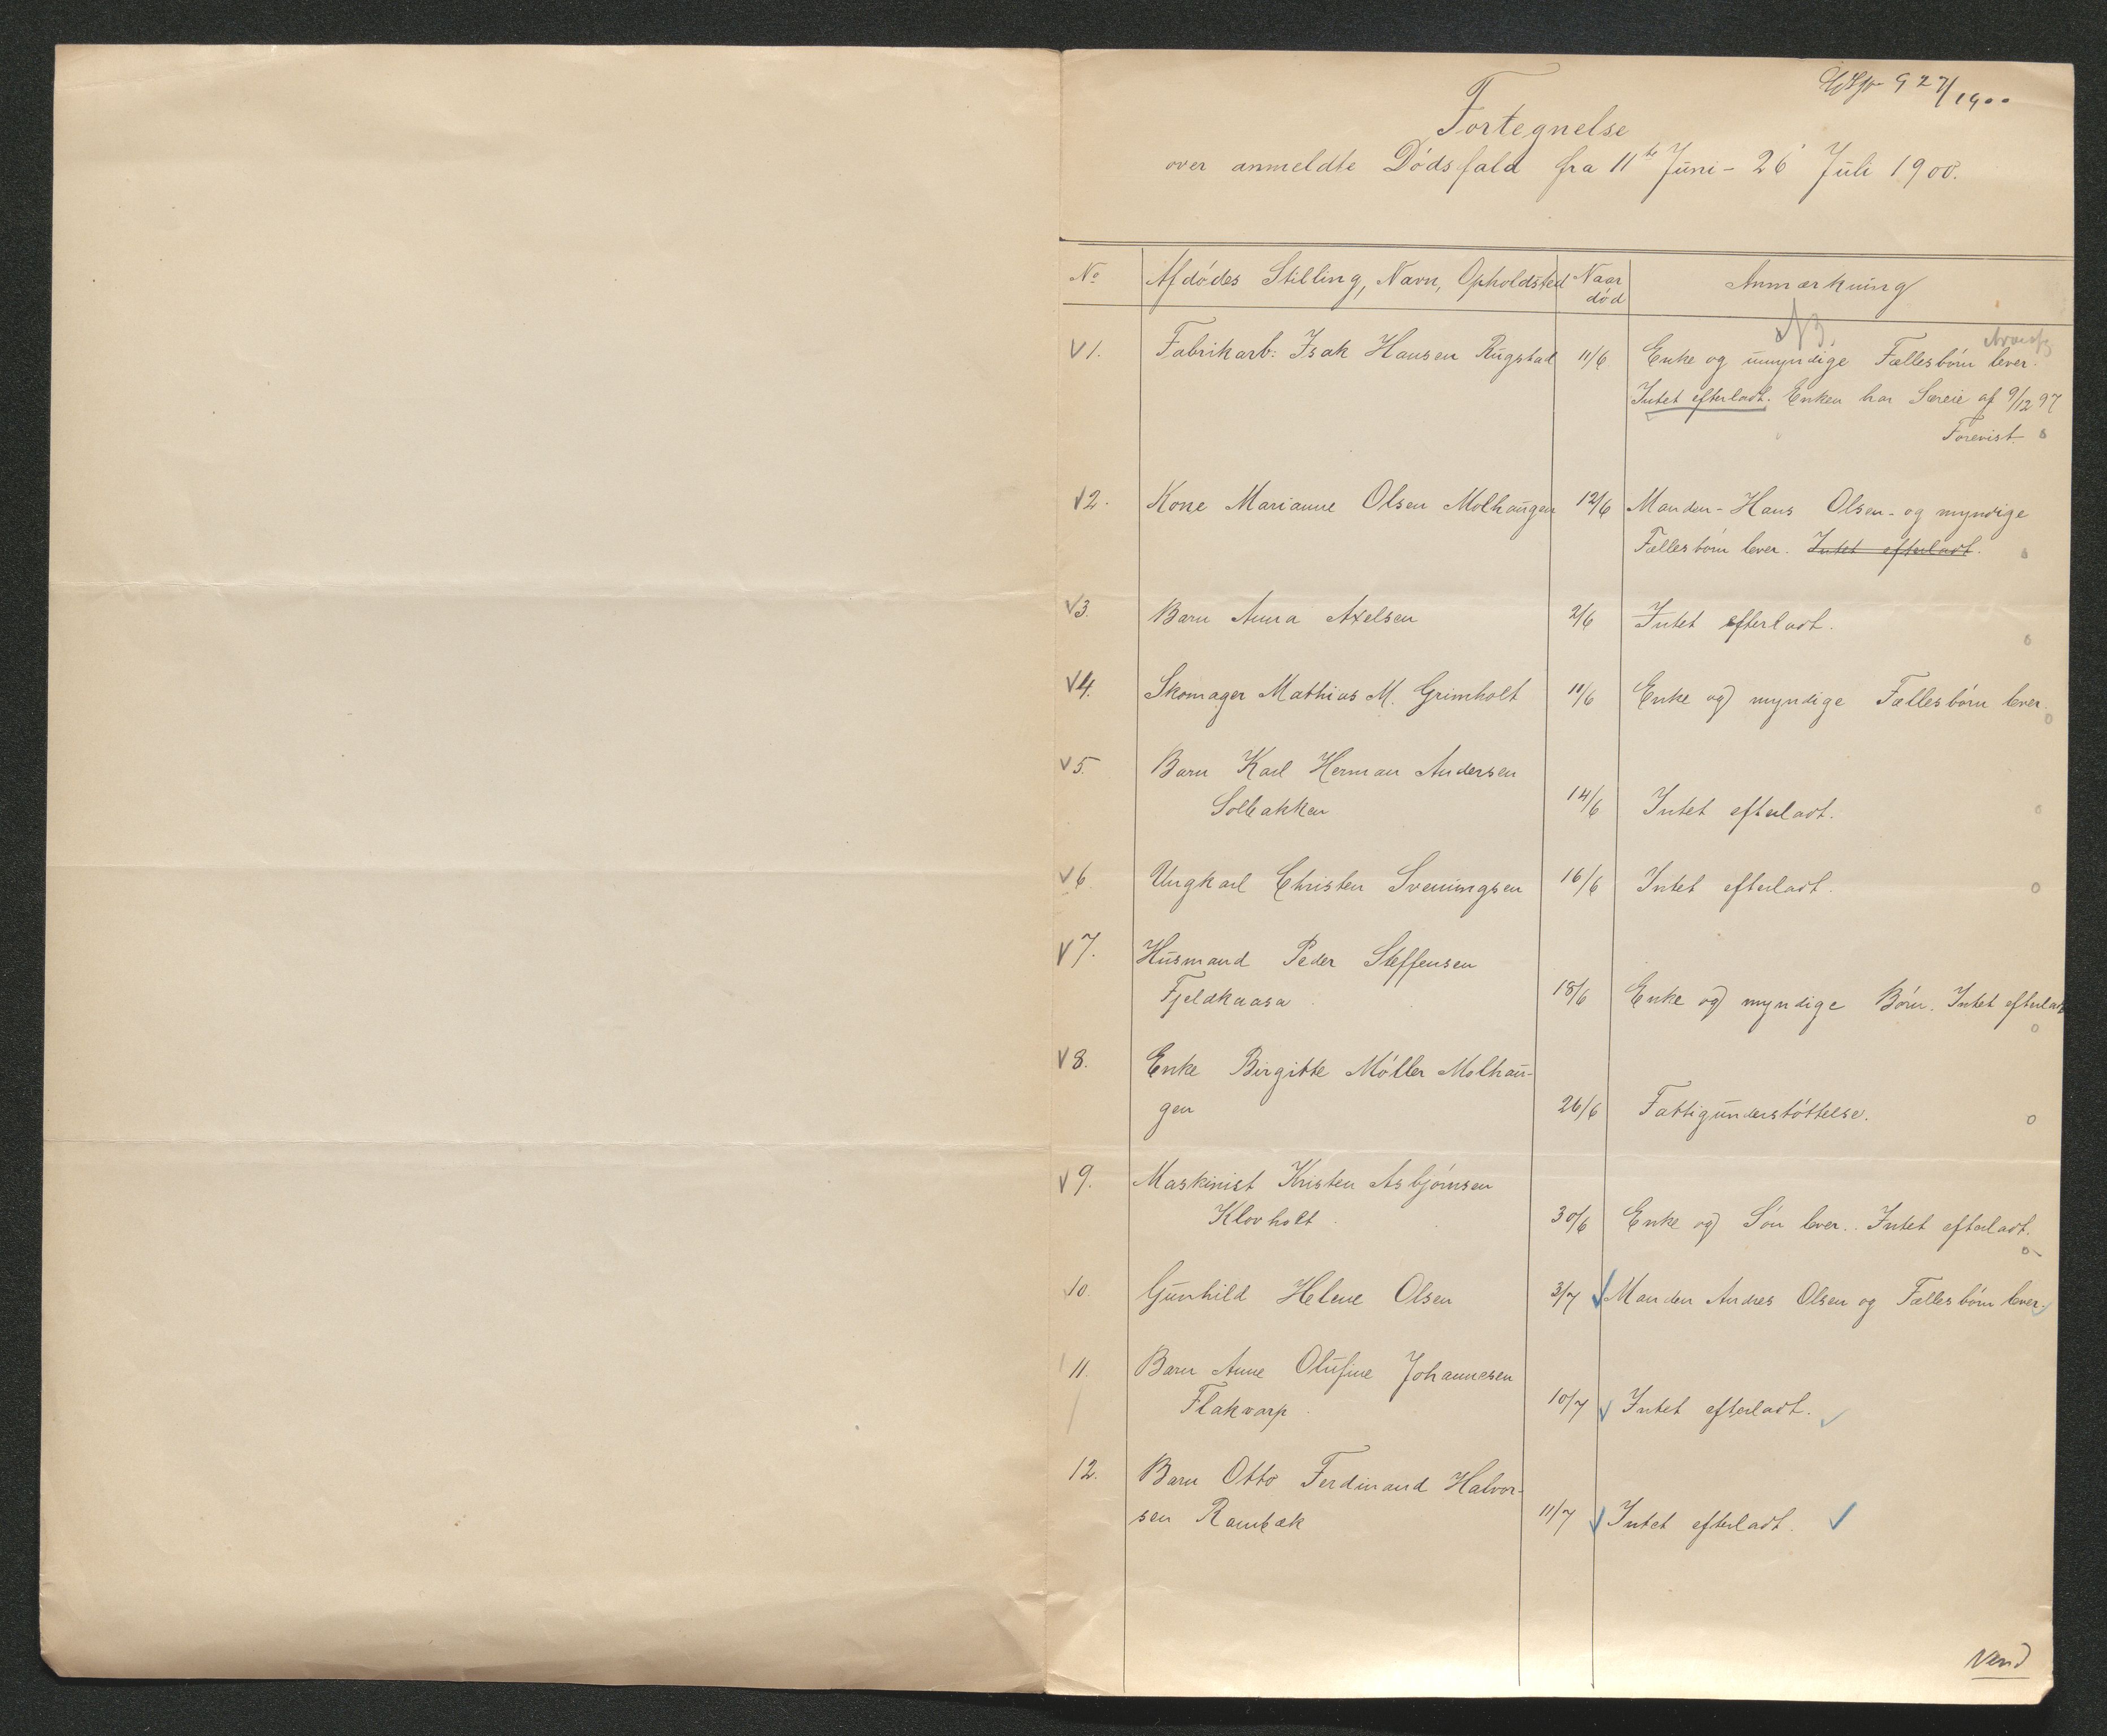 927/1900
Fortegnelse
over anmeldte Dødsfald fra 11te Juni - 26' Juli 1900.
No Afdødes Stilling, Navn, Opholdsted Naar død Anmærkning
NB.
1. Fabrikarb: Isak Hansen Rugstad 11/6 Enke og umyndige Fællesbørn lever.
Intet efterladt. Enken har Særeie af 9/12 97
Forevist.
2. Kone Marianne Olsen Molhaugen 12/6 Manden - Hans Olsen - og myndige
Fællesbørn lever. Intet efterladt.
3. Barn Anna Axelsen 2/6 Intet efterladt.
4. Skomager Mathias M. Grimholt 11/6 Enke og myndige Fællesbørn lever.
5. Barn Karl Herman Andersen
Solbakken 14/6 Intet efterladt.
6. Ungkarl Christen Sveningsen 16/6 Intet efterladt.
7. Husmand Peder Steffensen
Fjeldkaasa 18/6 Enke og myndige Børn. Intet efterladt
8. Enke Birgitte Møller Molhau-
gen 26/6 Fattigunderstøttelse.
9. Maskinist Kristen Asbjørnsen
Klovholt 30/6 Enke og Søn lever. Intet efterladt.
10. Gunhild Helene Olsen 3/7 Manden Andres Olsen og Fællesbørn lever.
11. Barn Anne Olufine Johannesen
Flakvarp 10/7 Intet efterladt.
12. Barn Otto Ferdinand Halvor-
sen Rambæk 11/7 Intet efterladt.
Vend